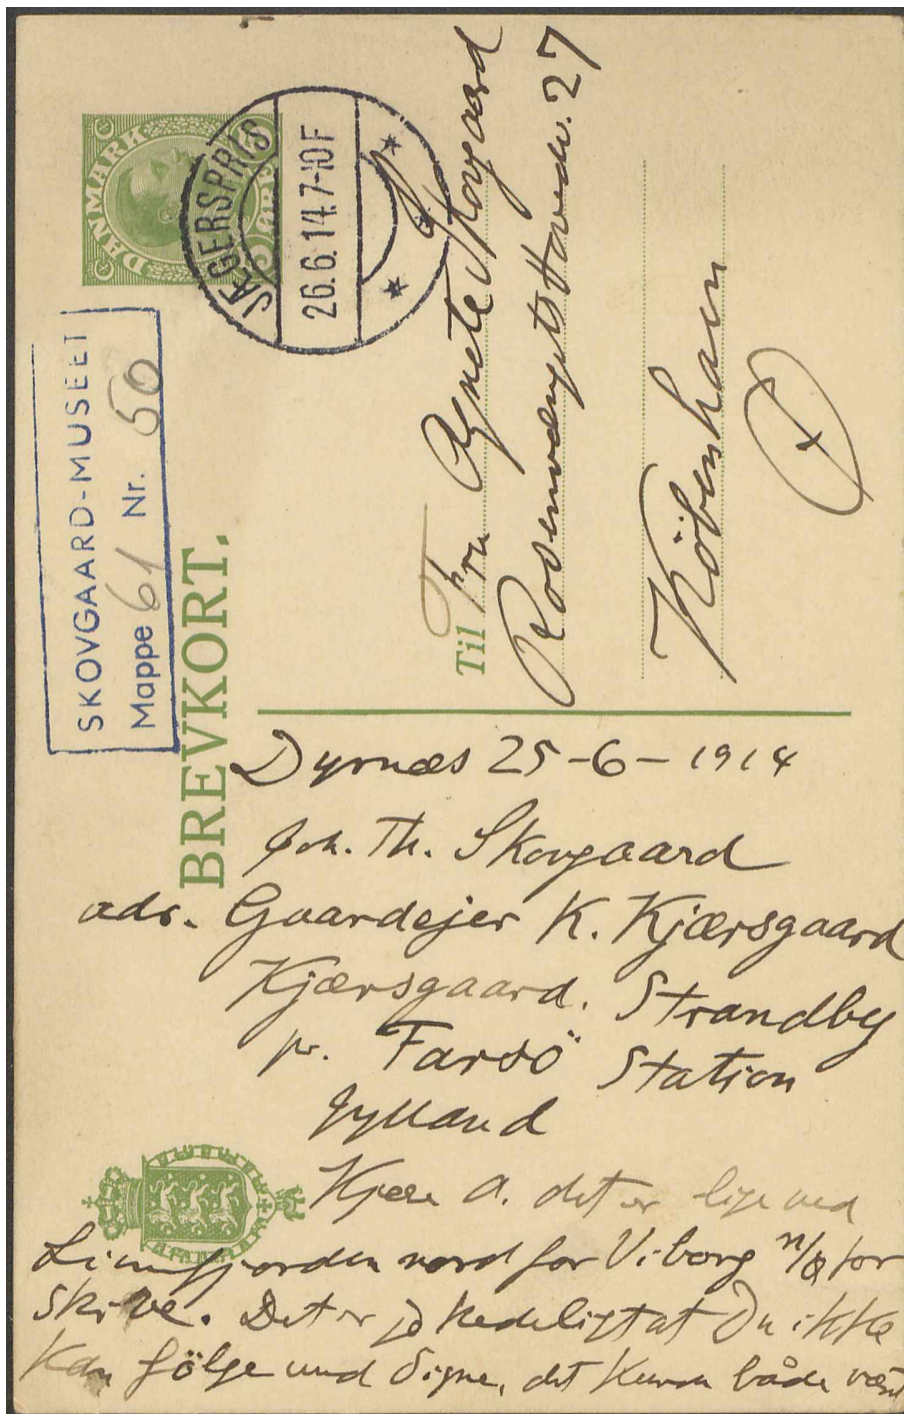 DANMARK
JÆGERSPRIS
26.6.14. 7-10F
SKOVGAARD-MUSEET
Mappe 61 Nr. 50
BREVKORT.
Til Fru Agnete Skovgaard
Rosenvængets Hovedv. 27
Köbenhavn
Dyrnæs 25-6-1914
Joh. Th. Skovgaard
adr. Gaardejer K. Kjærsgaard
Kjærsgaard. Strandby
pr. Farsö Station
Jylland
Kjære A. det er lige ved
Limfjorden nord for Viborg n/ø for
Skive. Det er jo kedeligt at Du ikke
kan følge med Signe, det kunde både være